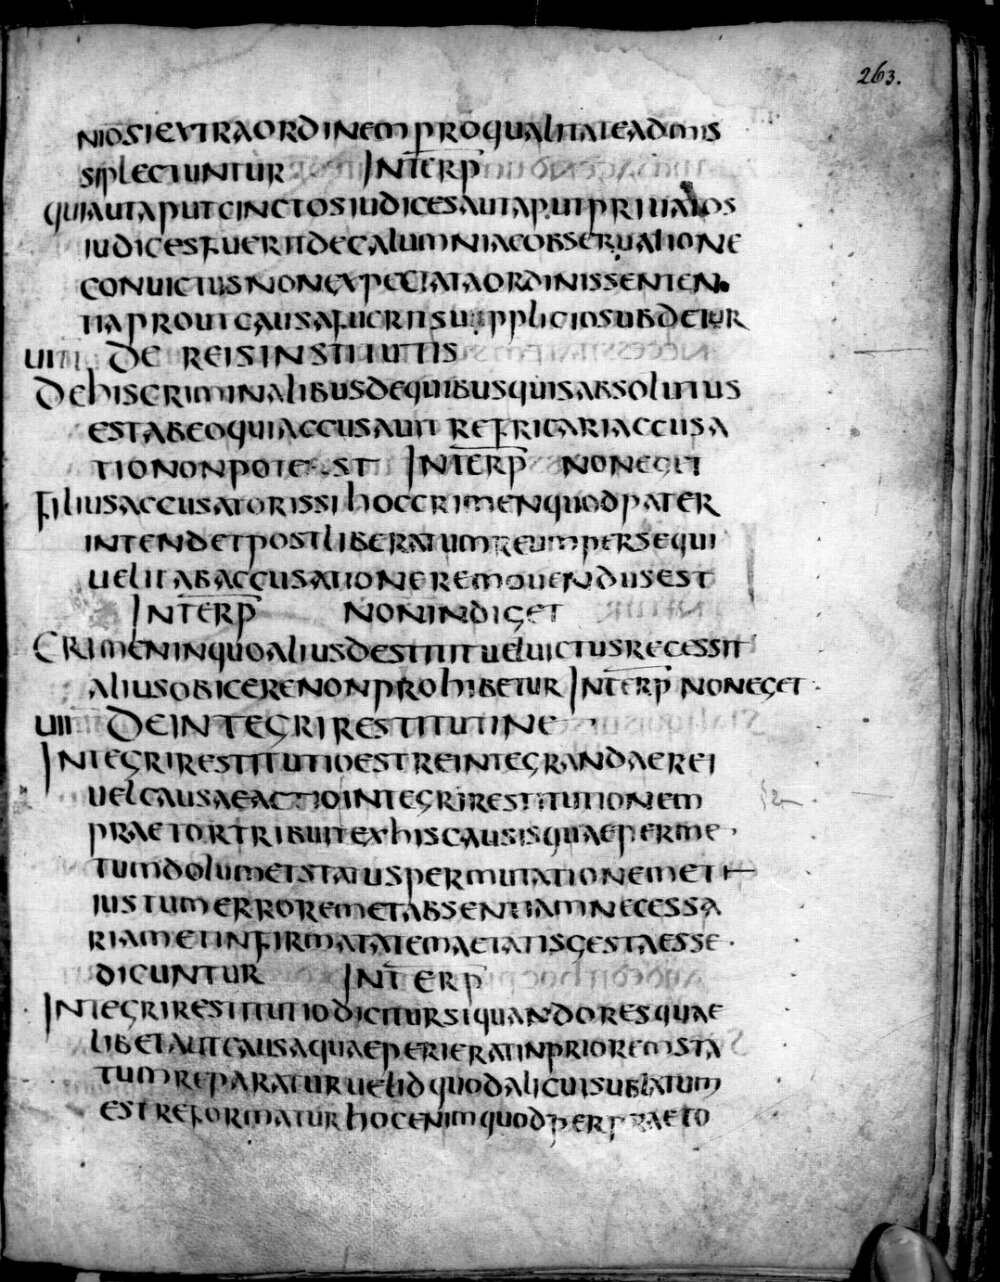 263.
NIOSIEXTRAORDINEMPROQUALITATEADMIS
SIPLECTUNTUR INTERP
QUIAUTAPUTCINCTOSIUDICESAUTAPUTPRIUATOS
IUDICESFUERITDECALUMNIAEOBSERUATIONE
CONUICTUSNONEXPECTATAORDINISSENTEN
TIAPROUTCAUSAFUERITSUPPLICIOSUBDETUR
UIIII DE REISINSTITUTIS
DEHISCRIMINALIBUSDEQUIBUSQUISABSOLUTUS
ESTABEOQUIACCUSAUIT REFRICARIACCUSA
TIONONPOTEST INTERP NONEGET
FILIUSACCUSATORISSIHOCCRIMENQUODPATER
INTENDETPOSTLIBERATUMREUMPERSEQUI
UELITABACCUSATIONEREMOUENDUSEST
INTERP NONINDIGET
CRIMENINQUOALIUSDESTITITUELUICTUSRECESSIT
ALIUSOBICERENONPROHIBETUR INTERP NONEGET
UIII DEINTEGRIRESTITUTINE
INTEGRIRESTITUTIOESTREINTEGRANDAEREI
UELCAUSAEACTIOINTEGRIRESTITUTIONEM
PRAETORTRIBUITEXHISCAUSISQUAEPERME
TUMDOLUMETSTATUSPERMUTATIONEMET
IUSTUMERROREMETABSENTIAMNECESSA
RIAMETINFIRMATATEMAETATISGESTAESSE
DICUNTUR INTERP
INTEGRIRESTITUTIODICITURSIQUANDORESQUAE
LIBETAUTCAUSAQUAEPERIERATINPRIOREMSTA
TUMREPARATURUELIDQUODALICUISUBLATUM
ESTREFORMATURHOCENIMQUODPERPRAETO